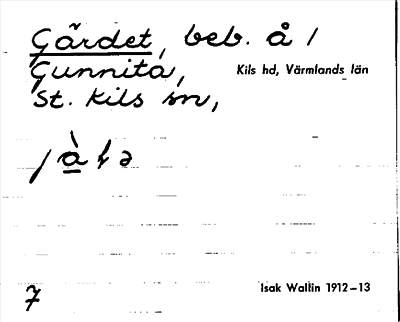 Gärdet, beb. å /
Gunnita,
Kils hd, Värmlands län
St. Kils sn,
7
Isak Wallin 1912–13